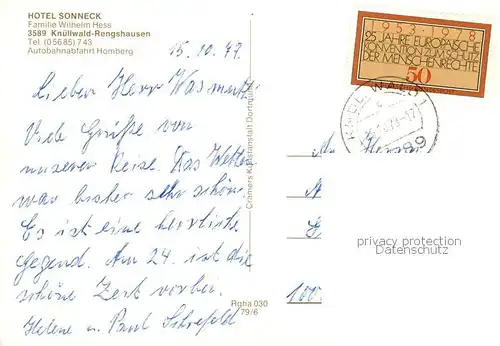 HOTEL SONNECK
Familie Wilhelm Hess
3589 Knüllwald-Rengshausen
Tel. (05685) 743
Autobahnabfahrt Homberg
15.10.79
Lieber Herr Wasmuth!
Viele Grüße von
unserer Reise. Das Wetter
war bisher sehr schön.
Es ist eine herrliche
Gegend. Am 24. ist die
schöne Zeit vorbei.
Helene u. Paul
Cramers Kunstanstalt Dortmund
Rgha 030
79/6
1953-1978
25 JAHRE EUROPÄISCHE
KONVENTION ZUM SCHUTZ
DER MENSCHENRECHTE
50
KNÜLLWALD 1
privacy protection
Datenschutz
100